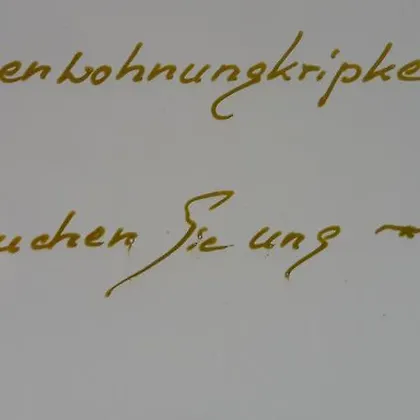 enwohnungkripke
uchen Sie ung